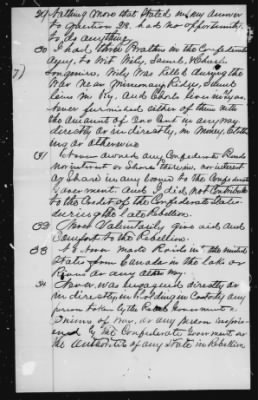 29 Nothing More that Stated in my answer
to question 28 had not opportunity
to do anything.
30 I had three Brothers in the Confederate
Army, to Wit Wily, Samuel & Charles
Longmire, Wily Was Killed during the
War Near Missionary Ridge, Samuel
lives in
never furnished either of them with
the Amount of One Cent in any way
directly or in directly, in Money, Cloth
ing or otherwise
31 Never owned any Confederate Bonds
nor interest or Share therein, nor interest
or Share in any Loan to the Confederate
Government and I did Not Contribute
to the Credit of the Confederate States
during the late Rebellion.
32 Never Voluntarily give aid and
Comfort to the Rebellion.
33 I Never made Raids in the United
States from Canada in the lake or
Rivers or any other way
34 Never was engaged directly or
in directly in holding in Custody any
person taken by the Rebel Government as
Prisoner of War, or any person imprison
ed by the Confederate Government or
the authorities of any State in Rebellion.